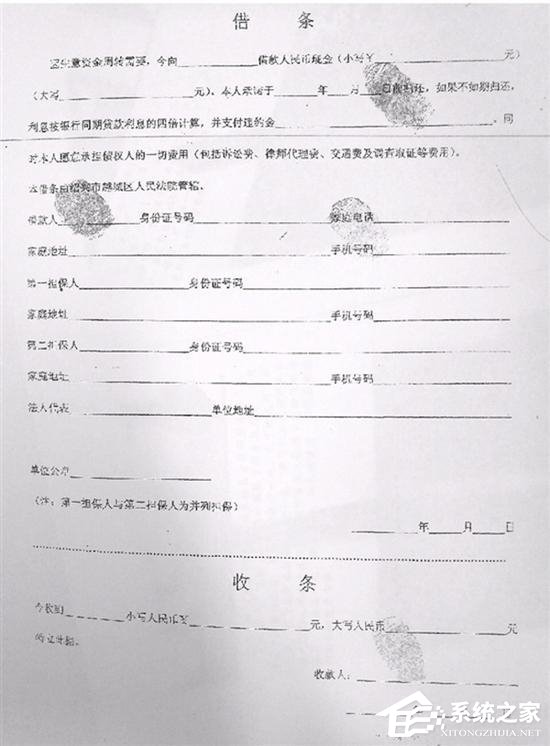 借 条
因生意资金周转需要，今向________借款人民币现金（小写￥________元）
（大写________元）、本人承诺于____年__月____日前归还，如果不如期归还，
利息按银行同期贷款利息的四倍计算，并支付违约金________。同
时本人愿意承担债权人的一切费用（包括诉讼费、律师代理费、交通费及调查取证等费用）。
本借条由绍兴市越城区人民法院管辖。
借款人________身份证号码________家庭电话________
家庭地址________手机号码________
第一担保人________身份证号码________
家庭地址________手机号码________
第二担保人________身份证号码________
家庭地址________手机号码________
法人代表________单位地址________
单位公章________
（注：第一担保人与第二担保人为并列担保）
____年____月____日
收 条
今收到________小写人民币￥________元，大写人民币________元
收款人：________
系统之家
XITONGZHIJIA.NET